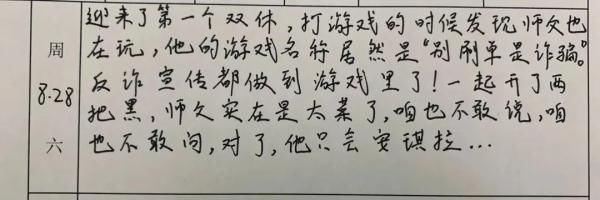 迎来了第一个双休，打游戏的时候发现师父也
在玩，他的游戏名称居然是“别刷单是诈骗。”
反诈宣传都做到游戏里了！一起开了两
把黑，师父实在是太菜了，咱也不敢说，咱
也不敢问，对了，他只会安琪拉...
周
8.28
六